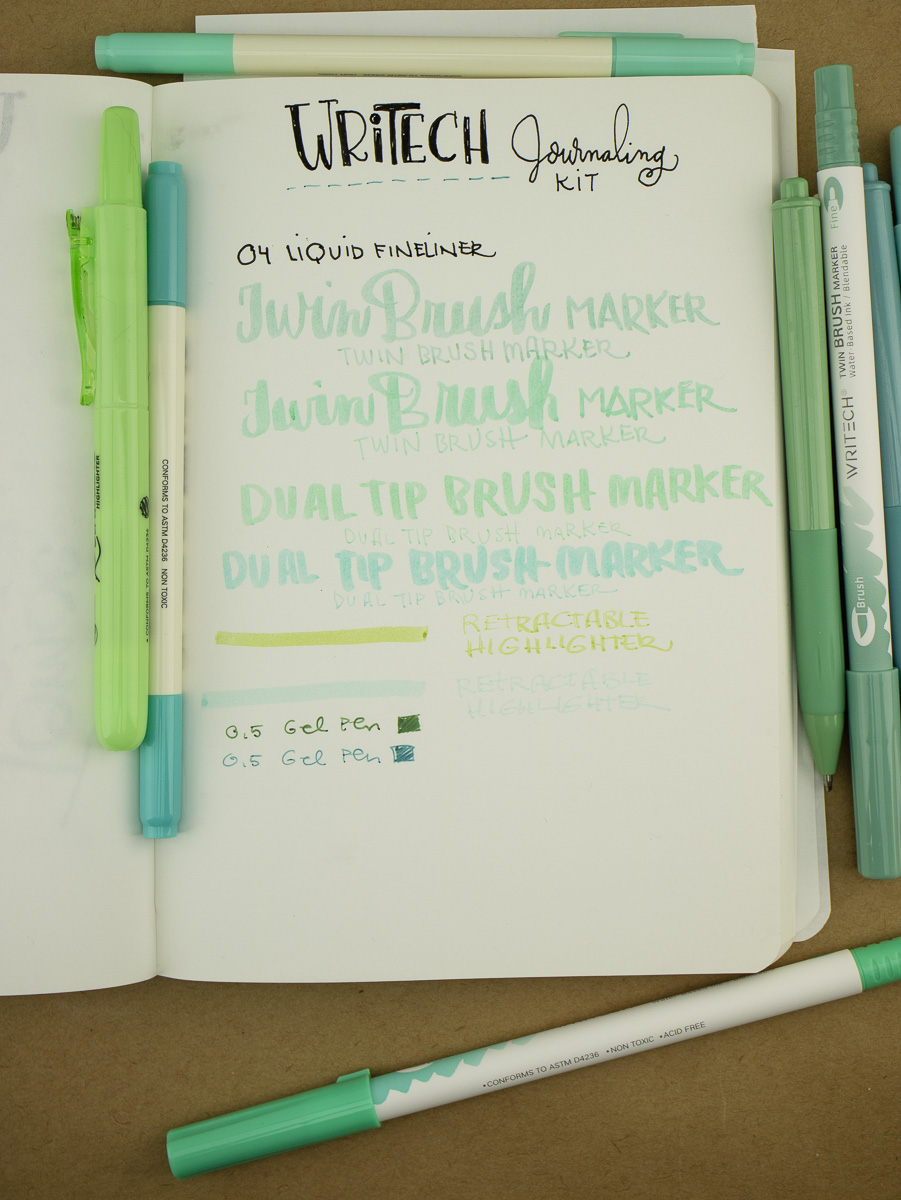 WRiTECH Journaling
KiT
04 LiQUiD FiNELiNER
Twin Brush MARKER
TWIN BRUSH MARKER
Twin Brush MARKER
TWIN BRUSH MARKER
DUAL TIP BRUSH MARKER
DUAL TIP BRUSH MARKER
DUAL TIP BRUSH MARKER
DUAL TIP BRUSH MARKER
RETRACTABLE
HIGHLIGHTER
RETRACTABLE
HIGHLIGHTER
0.5 Gel Pen
0.5 Gel Pen
HIGHLIGHTER
CONFORMS TO ASTM D4236 NON TOXIC
Fine
WRITECH® TWIN BRUSH MARKER
Water Based Ink / Blendable
Brush
•CONFORMS TO ASTM D4236 •NON TOXIC •ACID FREE